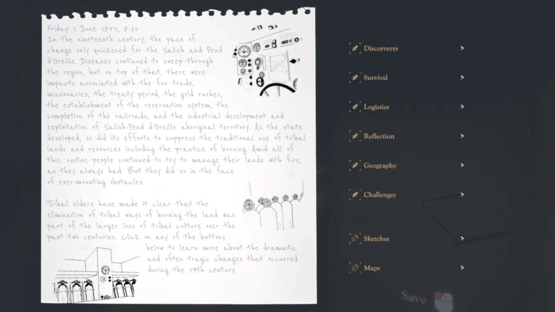 Friday 1 June 1877, 8:20
In the nineteenth century, the pace of
change only quickened for the Salish and Pend
d'Oreille. Diseases continued to sweep through
the region, but on top of that, there were
impacts associated with the fur trade,
missionaries, the treaty period, the gold rushes,
the establishment of the reservation system, the
completion of the railroads, and the industrial development and
exploitation of Salish-Pend d'Oreille aboriginal territory. As the state
developed, so did its efforts to suppress the traditional use of tribal
lands and resources including the practice of burning. Amid all of
this, native people continued to try to manage their lands with fire,
as they always had. But they did so in the face
of ever-mounting obstacles.
Tribal elders have made it clear that the
elimination of tribal ways of burning the land was
part of the larger loss of tribal culture over the
past two centuries. Click on any of the buttons
below to learn more about the dramatic
and often tragic changes that occurred
during the 19th century.
Discoverys
Survival
Logistics
Reflection
Geography
Challenges
Sketches
Maps
Save